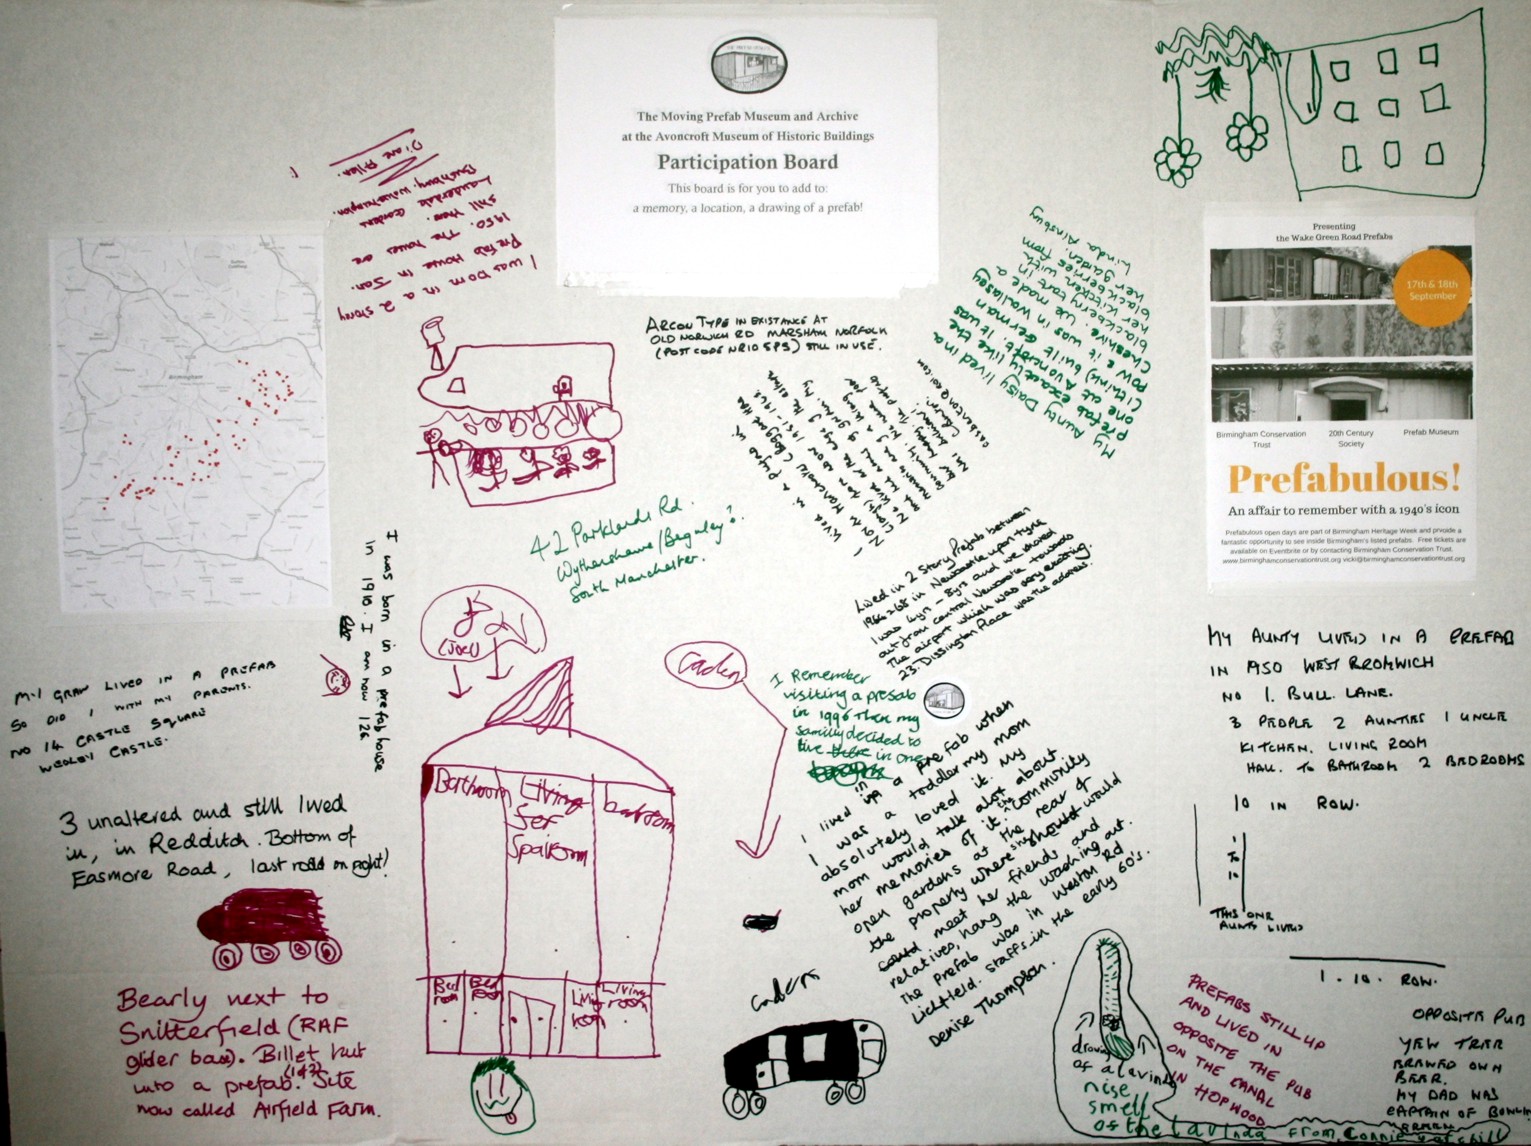 The Moving Prefab Museum and Archive
at the Avoncroft Museum of Historic Buildings
Participation Board
This board is for you to add to:
a memory, a location, a drawing of a prefab!
I was born in a 2 story
Prefab House in Jan.
1950. The houses are
still there.
Lauderdale Gardens
Bushbury. Wolverhampton.
Diane Allen.
Birmingham
ARCON TYPE IN EXISTANCE AT
OLD NORWICH RD MARSHAM NORFOLK
(POST CODE NR10 5PS) STILL IN USE.
My Aunty Daisy lived in a
prefab exactly like the
one at Avoncroft. It was
(timing) built German
POW & it was in Wallasey
Cheshire. We made
blackberry tart in
her kitchen with
blackberries from
her garden.
Linda Ainsbury
Presenting
the Wake Green Road Prefabs
17th & 18th
September
Birmingham Conservation
Trust
20th Century
Society
Prefab Museum
Prefabulous!
An affair to remember with a 1940's icon
Prefabulous open days are part of Birmingham Heritage Week and provide a
fantastic opportunity to see inside Birmingham's listed prefabs. Free tickets are
available on Eventbrite or by contacting Birmingham Conservation Trust.
www.birminghamconservationtrust.org vicki@birminghamconservationtrust.org
42 Parklands Rd.
Wythenshawe/Baguley?
South Manchester.
Lived in 2 Story Prefab between
1966-68 in Newcastle upon Tyne
I was 4yrs - 8yrs and we moved
out from central Newcastle towards
the airport which was very exciting.
23. Dissington Place was the address.
I was born in a prefab house
in 1910. I am now 126
MY GRAN LIVED IN A PREFAB
SO DID I WITH MY PARENTS.
NO 14 CASTLE SQUARE
WEOLEY CASTLE.
3 unaltered and still lived
in, in Redditch. Bottom of
Easmore Road, last road on right!
Bearly next to
Snitterfield (RAF
glider base). Billet hut
into a prefab. (1 of 2) Site
now called Airfield Farm.
Caden
Bathroom
Living
for
bedroom
Bed
room
Bed
room
Living
room
Living
room
I Remember
visiting a prefab
in 1996 then my
family decided to
live there in one
I lived in a prefab when
I was a toddler my mom
absolutely loved it. My
mom would talk alot about
her memories of it. The "community"
open gardens at the rear of
the property where she would
could meet her friends and
relatives, hang the washing out.
The Prefab was in Weston Rd
Lichfield. Staffs in the early 60's.
Denise Thompson.
Caden
MY AUNTY LIVED IN A PREFAB
IN 1950 WEST BROMWICH
NO 1. BULL LANE.
3 PEOPLE 2 AUNTIES 1 UNCLE
KITCHEN. LIVING ROOM
HALL. TO BATHROOM 2 BEDROOMS
10 IN ROW.
1
TO
10
THIS ONE
AUNTY LIVED
1 - 10. ROW.
OPPOSITE PUB
YEW TREE
BREWED OWN
BEER.
MY DAD WAS
CAPTAIN OF BOWLIN
PREFABS STILL UP
AND LIVED IN
OPPOSITE THE PUB
ON THE CANAL
IN HOPWOOD
drawing
of a lavinda
nise
smell
of the lavinda from Connie